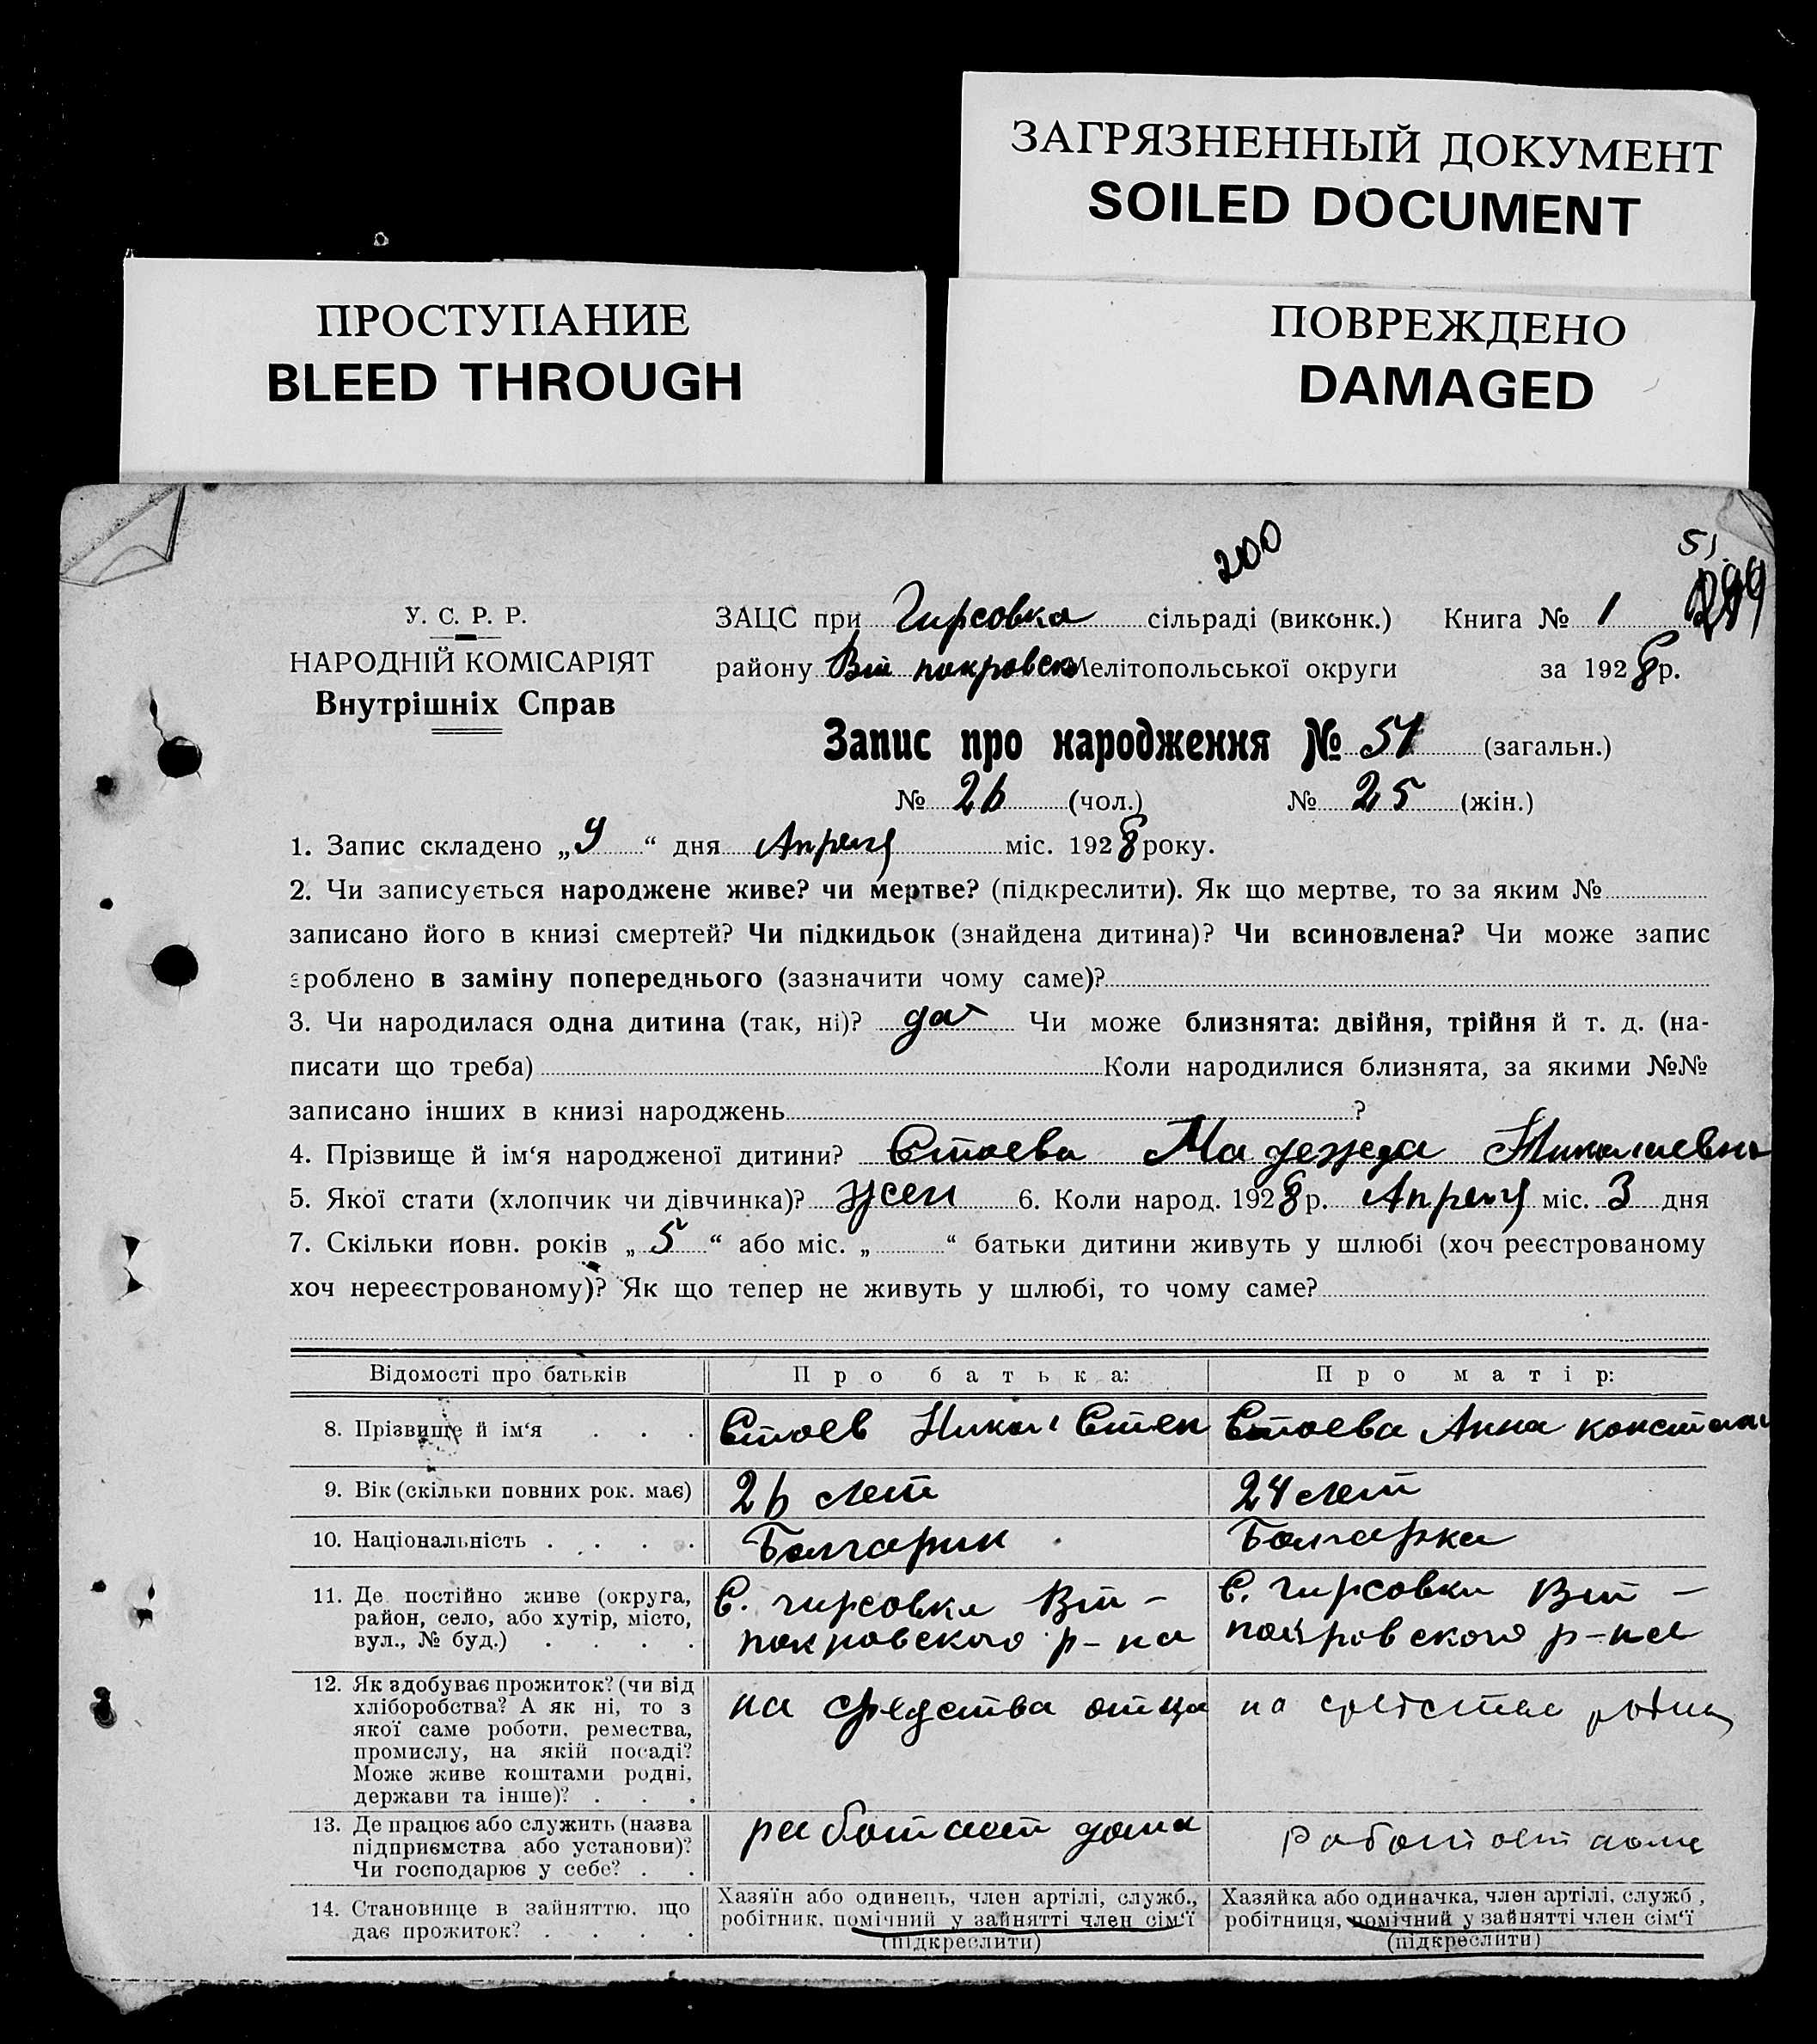 ЗАГРЯЗНЕННЫЙ ДОКУМЕНТ
SOILED DOCUMENT
ПРОСТУПАНИЕ
BLEED THROUGH
ПОВРЕЖДЕНО
DAMAGED
200
51.
У. С. Р. Р.
НАРОДНІЙ КОМІСАРІЯТ
Внутрішніх Справ
ЗАЦС при Гирсовка сільраді (виконк.) Книга № 1
району Вт покровск Мелітопольської округи за 1928 р.
Запис про народження № 51 (загальн.)
№ 26 (чол.) № 25 (жін.)
1. Запис складено „9“ дня Апреля міс. 1928 року.
2. Чи записується народжене живе? чи мертве? (підкреслити). Як що мертве, то за яким №
записано його в книзі смертей? Чи підкидьок (знайдена дитина)? Чи всиновлена? Чи може запис
зроблено в заміну попереднього (зазначити чому саме)?
3. Чи народилася одна дитина (так, ні)? да Чи може близнята: двійня, трійня й т. д. (на-
писати що треба) Коли народилися близнята, за якими №№
записано інших в книзі народжень ?
4. Прізвище й ім‘я народженої дитини? Стоева Надежда Николаевна
5. Якої стати (хлопчик чи дівчинка)? жен 6. Коли народ. 1928 р. Апреля міс. 3 дня
7. Скільки повн. років „5“ або міс. „ “ батьки дитини живуть у шлюбі (хоч реєстрованому
хоч нереєстрованому)? Як що тепер не живуть у шлюбі, то чому саме?
Відомості про батьків Про батька: Про матір:
8. Прізвище й ім‘я . . . Стоев Никол Степ Стоева Анна констан
9. Вік (скільки повних рок. має) 26 лет 24 лет
10. Національність . . . . Болгарин Болгарка
11. Де постійно живе (округа, район, село, або хутір, місто, вул., № буд.) . . . .
С. гирсовка Вт -
покровского р-на
С. гирсовки Вт -
покровского р-на
12. Як здобуває прожиток? (чи від
хліборобства? А як ні, то з
якої саме роботи, ремества,
промислу, на якій посаді?
Може живе коштами родні,
держави та інше)? . . .
на средства отца
на средства
13. Де працює або служить (назва
підприємства або установи)?
Чи господарює у себе? . .
работает дома
Работает дома
14. Становище в зайняттю, що
дає прожиток? . . . .
Хазяїн або одинець, член артілі, служб.,
робітник, помічний у зайнятті член сім‘ї
(підкреслити)
Хазяйка або одиначка, член артілі, служб.,
робітниця, помічний у зайнятті член сім‘ї
(підкреслити)